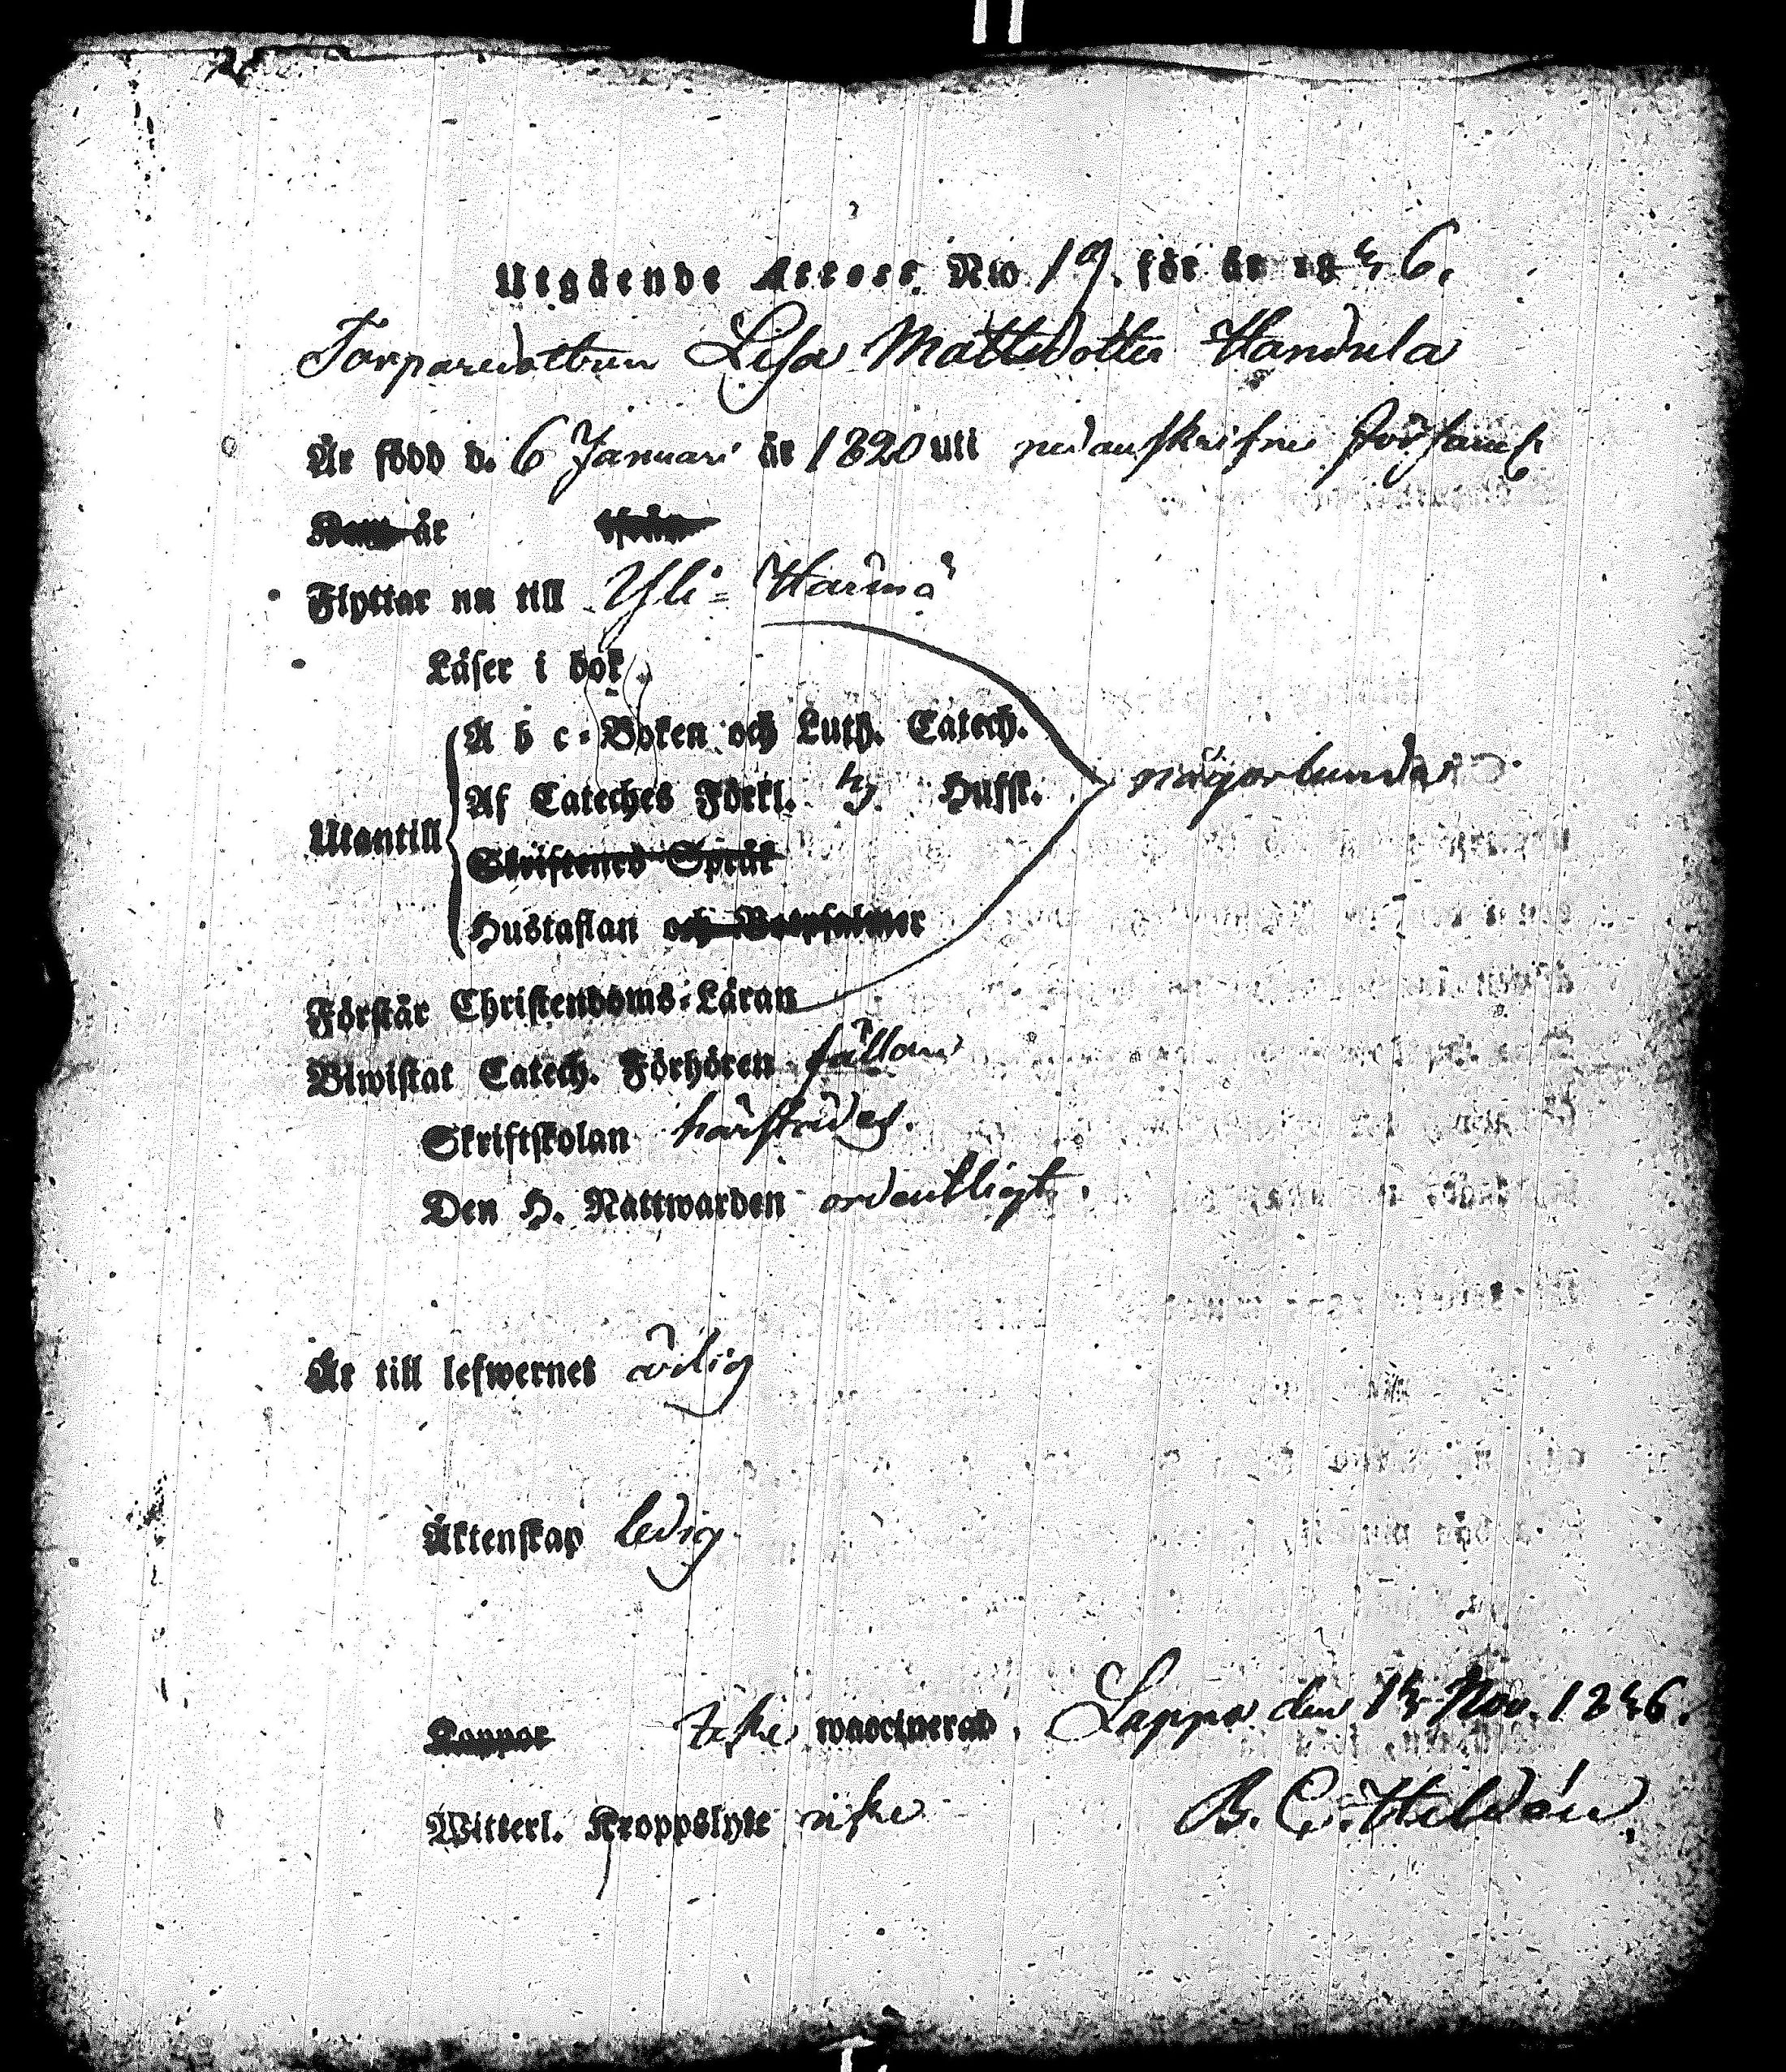 Utgående Attest No 19. för år 1846.
Torparedottren Lisa Mattsdotter Handula
Är född d. 6 Januari år 1820 uti nedanskrifne Församl.
Kom år ifrån
Flyttar nu till Yli-Härmä
Läser i bok
A b c-Boken och Luth. Catech.
Af Cateches Förkl. 4 Hufst. någorlunda
Utantill
Skriftenes Språk
Hustaflan och Botpsalmer
Förstår Christendoms-Läran
Biwistat Catech. Förhören sällan
Skriftskolan härstädes.
Den H. Nattwarden ordentligt.
Är till lefwernet
Äktenskap ledig
Koppor icke waccinerad. Lappo den 14 Nov. 1846.
Witterl. Kroppslyte icke B. C. Heldén